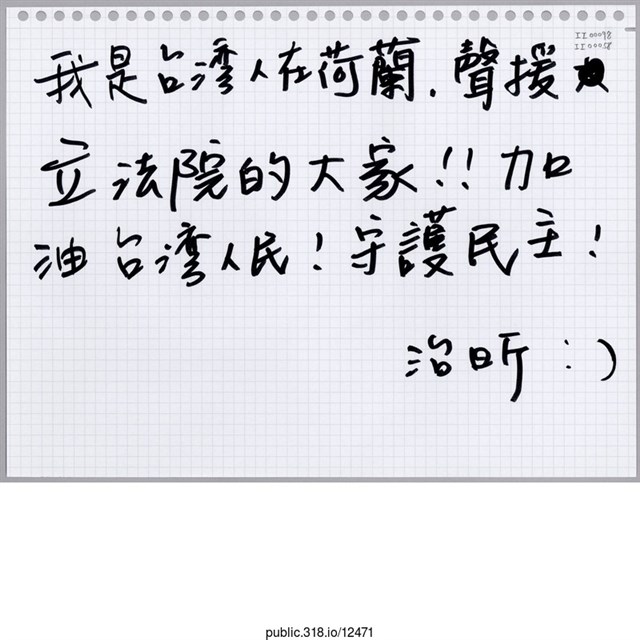 II00098
II00058
我是台湾人在荷蘭.聲援
立法院的大家!!加
油台湾人民!守護民主!
治昕:)
public.318.io/12471